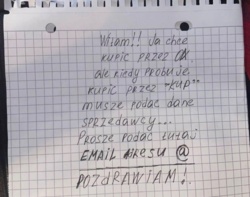 Witam!! Ja chce
kupic przez OLX
ale kiedy probuje
kupic przez "KUP"
musze podac dane
sprzedawcy...
Prosze podac tutaj
EMAIL Adresu @
POZDRAWIAM!